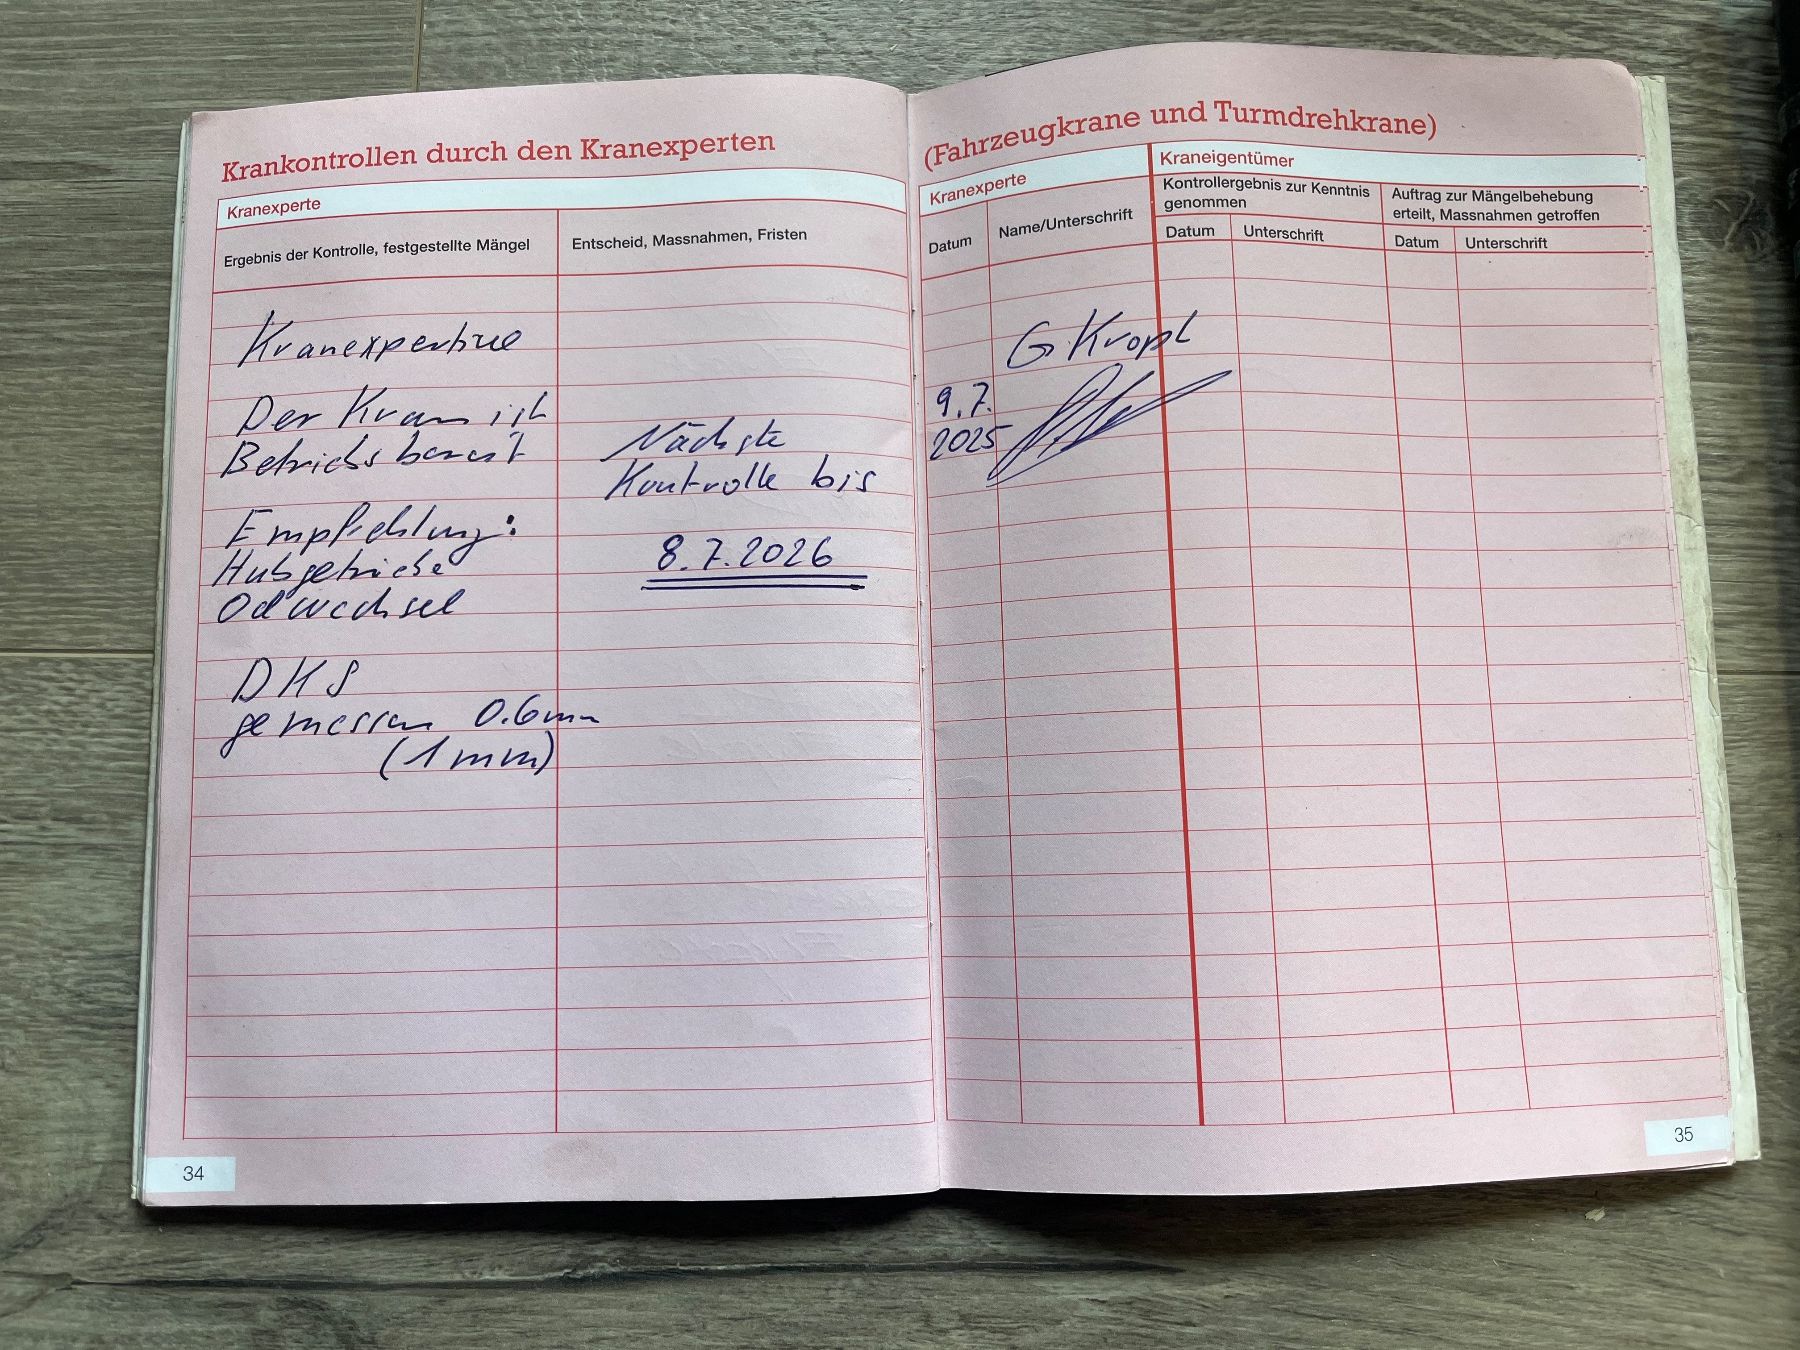 Krankontrollen durch den Kranexperten
Kranexperte
Ergebnis der Kontrolle, festgestellte Mängel
Entscheid, Massnahmen, Fristen
Kranexpertise
Der Kran ist
Betriebsbereit
Empfehlung:
Hubgetriebe
Oelwechsel
DKS
gemessen 0.6mm
(1mm)
Nächste
Kontrolle bis
8.7.2026
34
(Fahrzeugkrane und Turmdrehkrane)
Kranexperte
Kraneigentümer
Kontrollergebnis zur Kenntnis
genommen
Auftrag zur Mängelbehebung
erteilt, Massnahmen getroffen
Datum
Name/Unterschrift
Datum
Unterschrift
Datum
Unterschrift
G Kropf
9.7.
2025
35